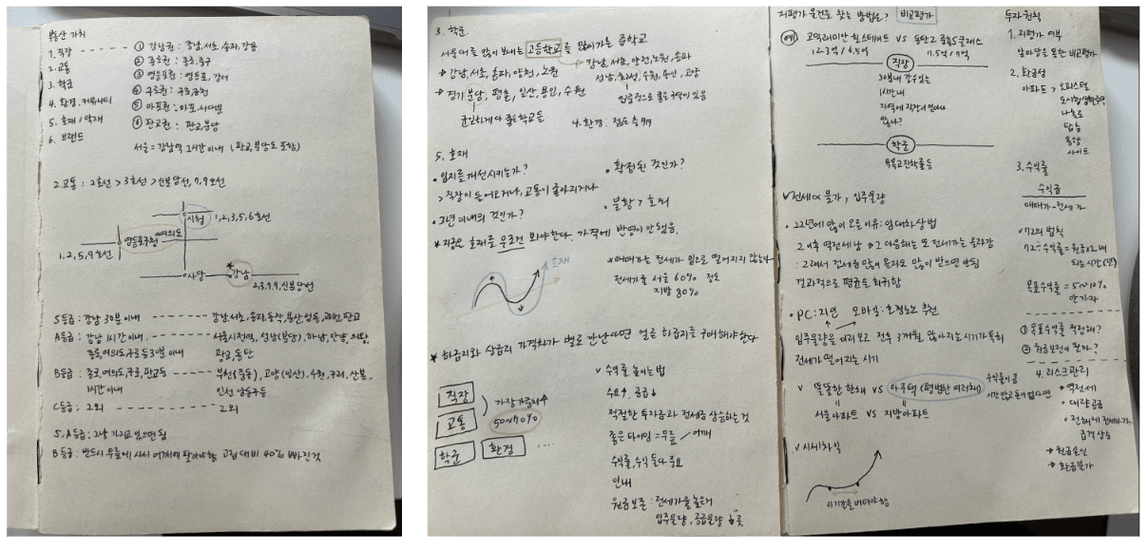 부동산 가치
1. 직장 ------ ① 강남권 : 강남, 서초, 송파, 강동
2. 교통 ② 종로권 : 종로, 중구
3. 학군 ③ 영등포권 : 영등포, 강서
4. 환경, 커뮤니티 ④ 구로권 : 구로, 금천
5. 호재 / 악재 ⑤ 마포권 : 마포, 서대문
6. 브랜드 ⑥ 판교권 : 판교, 분당
서울 = 강남역 1시간 이내 ( 판교, 분당도 포함)
2. 교통 : 2호선 > 3호선 > 신분당선, 7, 9호선
시청 1, 2, 3, 5, 6호선
영등포구청 여의도
1, 2, 5, 9호선
사당 강남
2, 3, 7, 9, 신분당선
S등급 : 강남 30분 이내 ------ 강남, 서초, 송파, 동작, 용산, 성동, 과천, 판교
A등급 : 강남 1시간 이내 ------ 서울시 전역, 성남(분당), 하남, 안양,
종로, 여의도, 구로 등 30분 이내 광교, 동탄
B등급 : 종로, 여의도, 구로, 판교 등 ------ 부천(중동), 고양(일산), 수원, 구리, 산본,
1시간 이내 인천
C등급 : 그 외 ------ 그 외
S, A등급 : 그냥 가지고 있으면 됨
B등급 : 반드시 무릎에 사서 어깨에 팔아야 함 고점 대비 40% 빠진 것
3. 학군
서울대를 많이 보내는 고등학교를 많이 가는 중학교
강남, 서초, 송파, 양천, 노원 강남, 서초, 양천, 노원, 송파
경기 분당, 평촌, 일산, 용인, 수원 성남, 수원, 용인, 고양
균일하게 다 좋은 학교들
4. 환경 :
5. 호재
• 입지를 개선시키는가? • 확정된 것인가?
> 직장이 들어오거나, 교통이 좋아지거나
• 3년 이내의 것인가? • 불황 > 호황
* 지금은 호재를 무조건 봐야한다. 가격에 반영이 안됐음.
호재
* 매매가는 전세가 밑으로 떨어지지 않는다
전세가율 서울 60% 정도
지방 80%
* 하급지와 상급지 가격차가 별로 안난다면 얼른 상급지를 구매해야한다
직장
교통
가장 가중치↑
50~70%
학군 환경 ....
v 수익률 높이는 법
수요↑ 공급↓
적절한 투자금과 전세금 상승하는 것
좋은 타이밍 = 무릎 / 어깨
수익률, 수익 둘 다 중요
인내
원금보존 : 전세가율 높은데
입주물량, 공급물량 ↓ 곳
저평가 물건을 찾는 방법은? 비교평가
예) 코오롱 힐스테이트 vs 동탄2
직장
30분내 갈 수 있는
1시간내
지역에 직장이 얼마나
있나?
학군
특목고 진학률 등
v 전세 ∝ 물가, 입주물량
• 22년에 많이 오른 이유 : 임대차상법
: 그래서 전세를 많이 올려도 많이 받으면 안됨
결과적으로 평균을 회귀함
• PC : 지인 모바일 : 호갱노노 추천
입주물량을 미리 보고 전후 3개월, 많아지는 시기가 특히
전세가 떨어지는 시기
v 똘똘한 한채 vs 아주택 (평범한 여러채)
서울아파트 vs 지방아파트
v 시세차익
이 기간을 버텨야 함
투자 원칙
1. 저평가 여부
2. 환금성
아파트 > 오피스텔
도시형생활주택
나홀로
빌라
3. 수익률
수익금
매매가 - 전세가
v 72의 법칙
72 ÷ 수익률 = 원금 x 2배
되는 시간 (년)
목표수익률 = 5~10%
① 목표수익률 적정해?
② 원금보전이 될까?
4. 리스크관리
• 역전세
• 대량공급
→ 원금손실
→ 환금불가